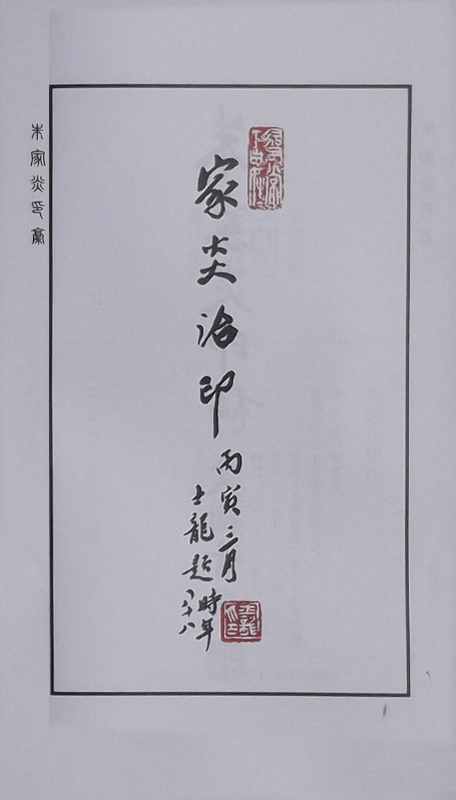 家炎治印
丙寅三月
士龍題
時年八十八
朱家炎印稾